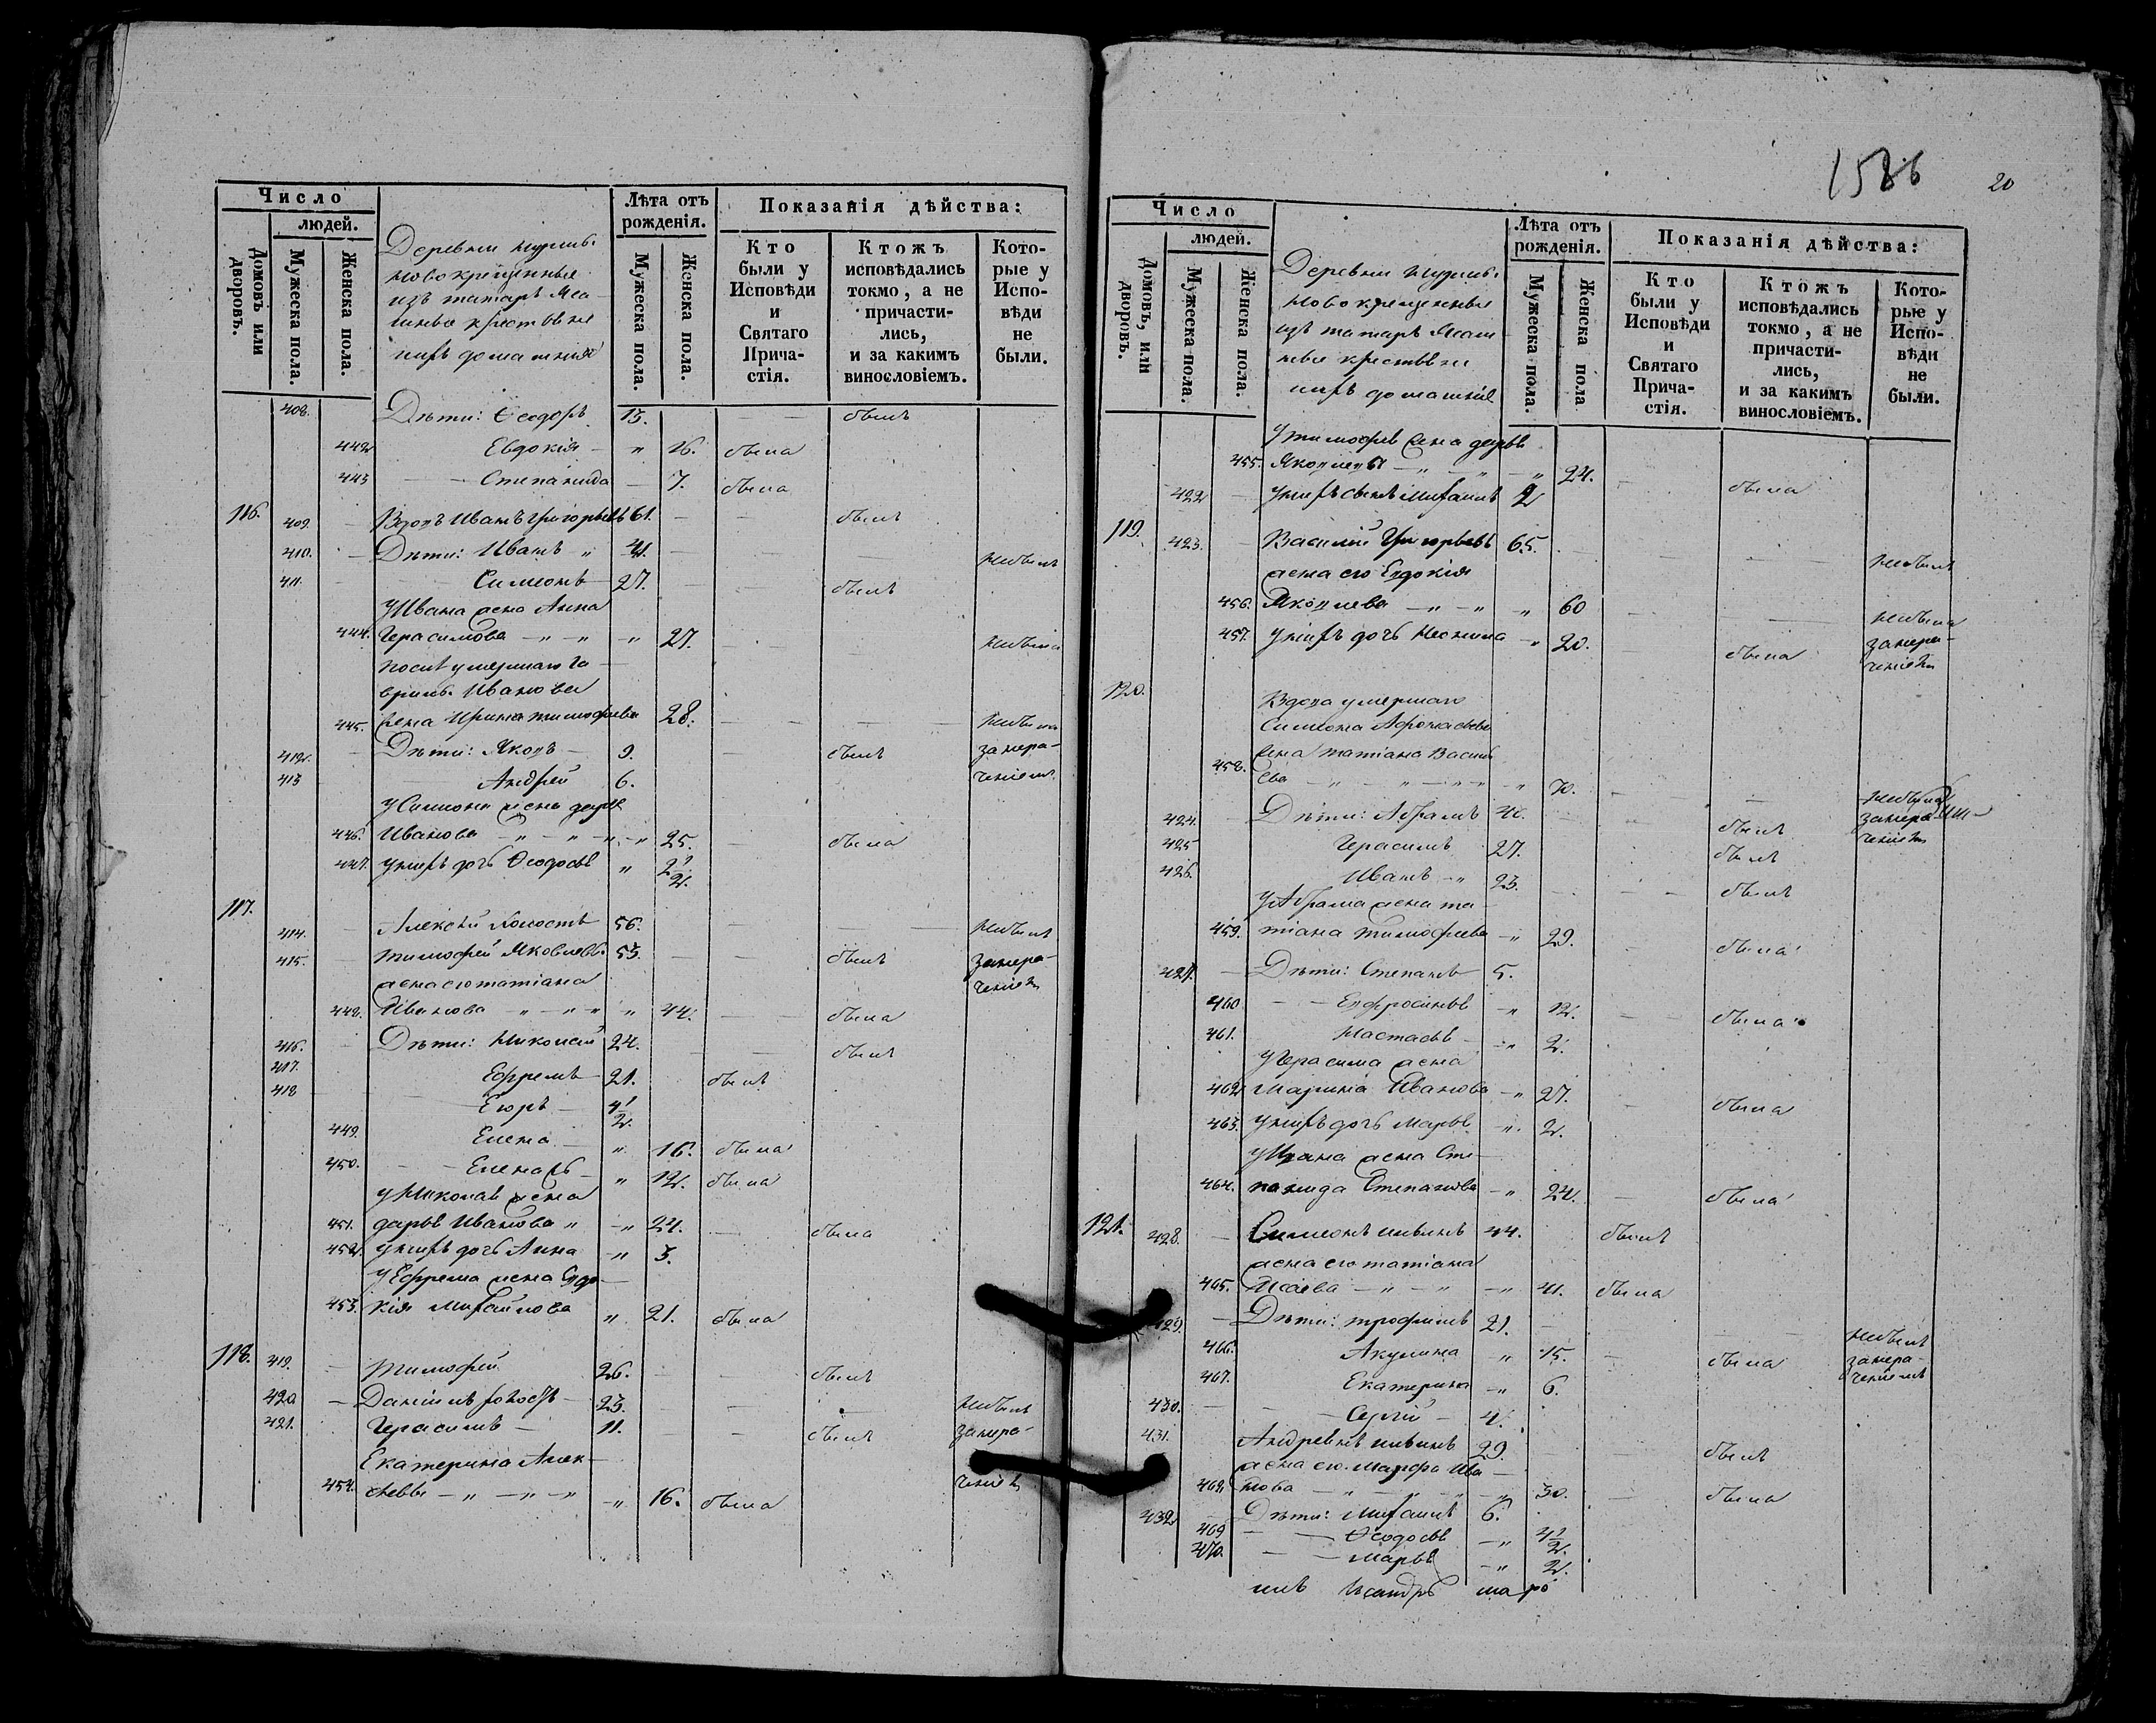 Число
людей.
Домовъ или дворовъ.
Мужеска пола.
Женска пола.
Деревни
новокрещенные
изъ татаръ
крестьяне
ихъ домашнія
Лѣта отъ рожденія.
Мужеска пола.
Женска пола.
Показанія дѣйства:
Кто были у Исповѣди и Святаго Причастія.
Ктожъ исповѣдались токмо, а не причастились, и за какимъ винословіемъ.
Которые у Исповѣди не были.
408. Дѣти: Ѳеодоръ 13. былъ
442 Евдокія „ 26. была
443 Степанида 7. была
116. 409. Вдовъ Иванъ Григорьевъ 61. былъ
410. Дѣти: Иванъ „ 41. небылъ
411. Симеонъ 27. былъ
У Ивана жена Анна
444. Герасимова „ 27. небыла
После умершаго Га-
врила Иванова
445. жена Ирина Тимофеева 28. небыла
412. Дѣти: Яковъ 9. былъ занера-
413 Андрей 6. чением
У Симеона жена Дарья
446. Иванова „ 25. была
447. у нихъ дочь Ѳеодосья „ 2 1/2.
117.
414. Алексѣй холостъ 56. небылъ
415. Тимофей Яковлевъ 53. былъ занера-
жена его татіана чением
448. Иванова „ 44. была
416. Дѣти: Николай 24. былъ
417. Ефремъ 21. былъ
418 Егоръ 4 1/2.
449. Елена „ 16. была
450. „ 12. была
У Николая жена
451. дарья Иванова „ 24. была
452. у нихъ дочь Анна „ 3.
У Ефрема жена Евдо-
453. кія Михайлова „ 21. была
118. 419. Тимофей 26. былъ
420. Даніилъ холостъ 23. небылъ
421. Герасимъ 11. былъ занера-
Екатерина Алек-
454. сѣева „ 16. была чением
1586
20
Число
людей.
Домовъ, или дворовъ.
Мужеска пола.
Женска пола.
Деревни
новокрещенные
изъ татаръ
крестьяне
ихъ домашнія
Лѣта отъ рожденія.
Мужеска пола.
Женска пола
Показанія дѣйства:
Кто были у Исповѣди и Святаго Причастія.
Ктожъ исповѣдались токмо, а не причастились, и за какимъ винословіемъ.
Которые у Исповѣди не были.
У тимофея жена дарья
455. Яковлева „ 24. была
422 у нихъ сынъ Михаилъ 2
119. 423. Василій Григорьевъ 65. небылъ
жена его Евдокія
456. Яковлева „ 60 небыла
457. у нихъ дочь Неонила „ 20. была занера-
чением
120. Вдова умершаго
Симеона
жена татіана Василь
458. ева „ 70. небыла
424. Дѣти: Абрамъ 40. былъ занера-
425 Герасимъ 27. былъ чением
426. Иванъ „ 23. былъ
У Абрама жена та-
459. тіана тимофеева „ 29. была
427. Дѣти: Степанъ 5.
460 Евфросинья „ 12. была
461. Настасья „ 2.
У Герасима жена
462 Марина Иванова „ 27. была
463. у нихъ дочь Марья „ 2.
У Ивана жена Сте-
464. панида Степанова „ 24. была
121. 428. Симеонъ 44. былъ
жена его татіана
465. Исаева „ 41. была
429. Дѣти: трофимъ 21. небылъ
466. Акулина „ 15. была занера-
467. Екатерина „ 6. чением
430. Сергѣй 4.
431. Андрей 29. былъ
жена его Марфа Ива-
468 нова „ 30. была
432 Дѣти: Михаилъ 6.
469 Ѳеодосья „ 4 1/2.
470. Марья „ 2.